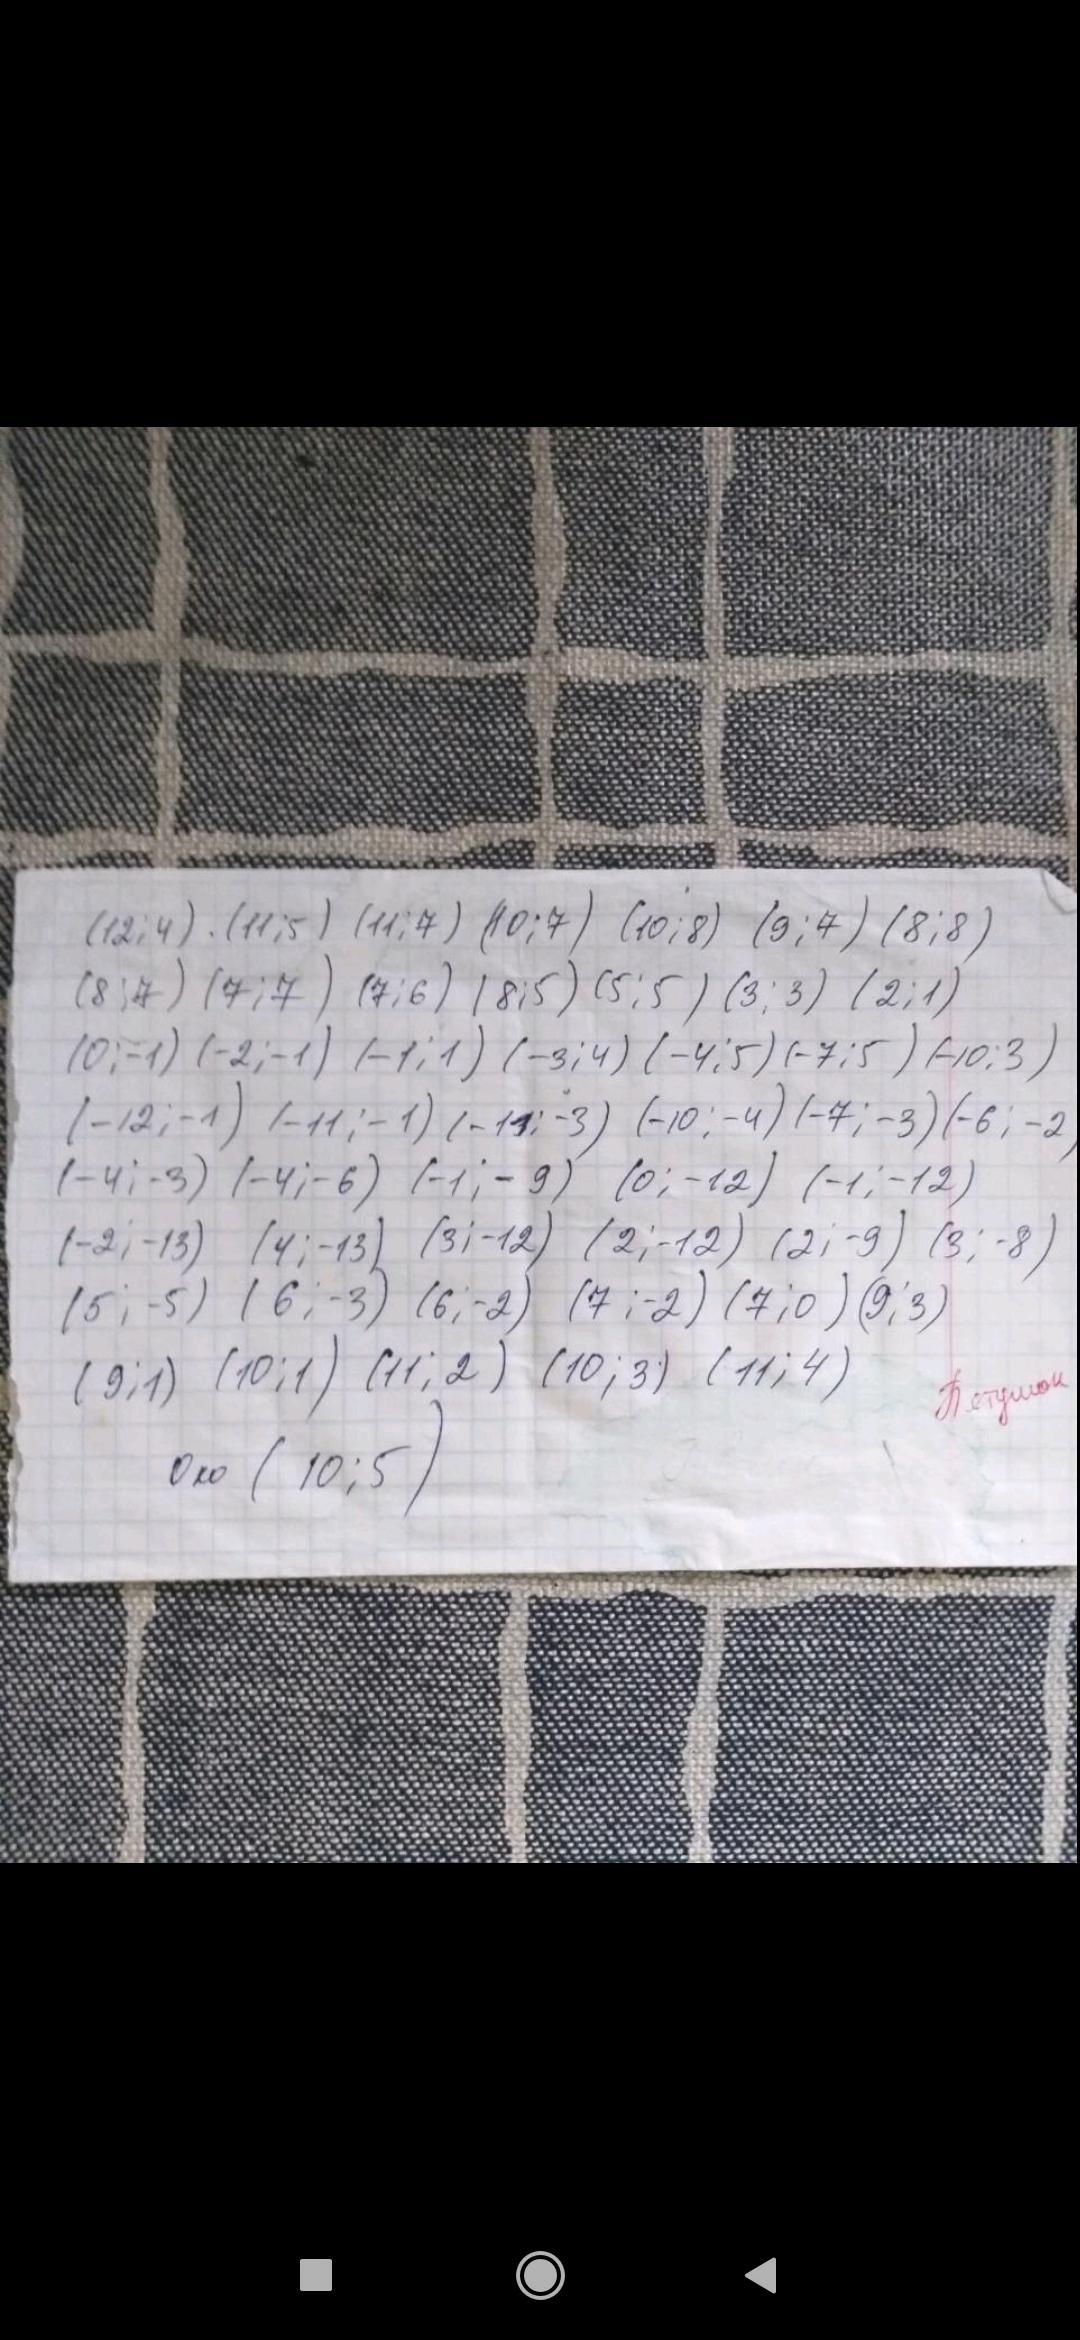 (12;4) . (11;5) (11;7) (10;7) (10;8) (9;7) (8;8)
(8;7) (7;7) (7;6) (8;5) (5;5) (3;3) (2;1)
(0;-1) (-2;-1) (-1;1) (-3;4) (-4;5) (-7;5) (-10;3)
(-12;-1) (-11;-1) (-11;-3) (-10;-4) (-7;-3) (-6;-2)
(-4;-3) (-4;-6) (-1;-9) (0;-12) (-1;-12)
(-2;-13) (4;-13) (3;-12) (2;-12) (2;-9) (3;-8)
(5;-5) (6;-3) (6;-2) (7;-2) (7;0) (9;3)
(9;1) (10;1) (11;2) (10;3) (11;4)
Петушок
Око (10;5)